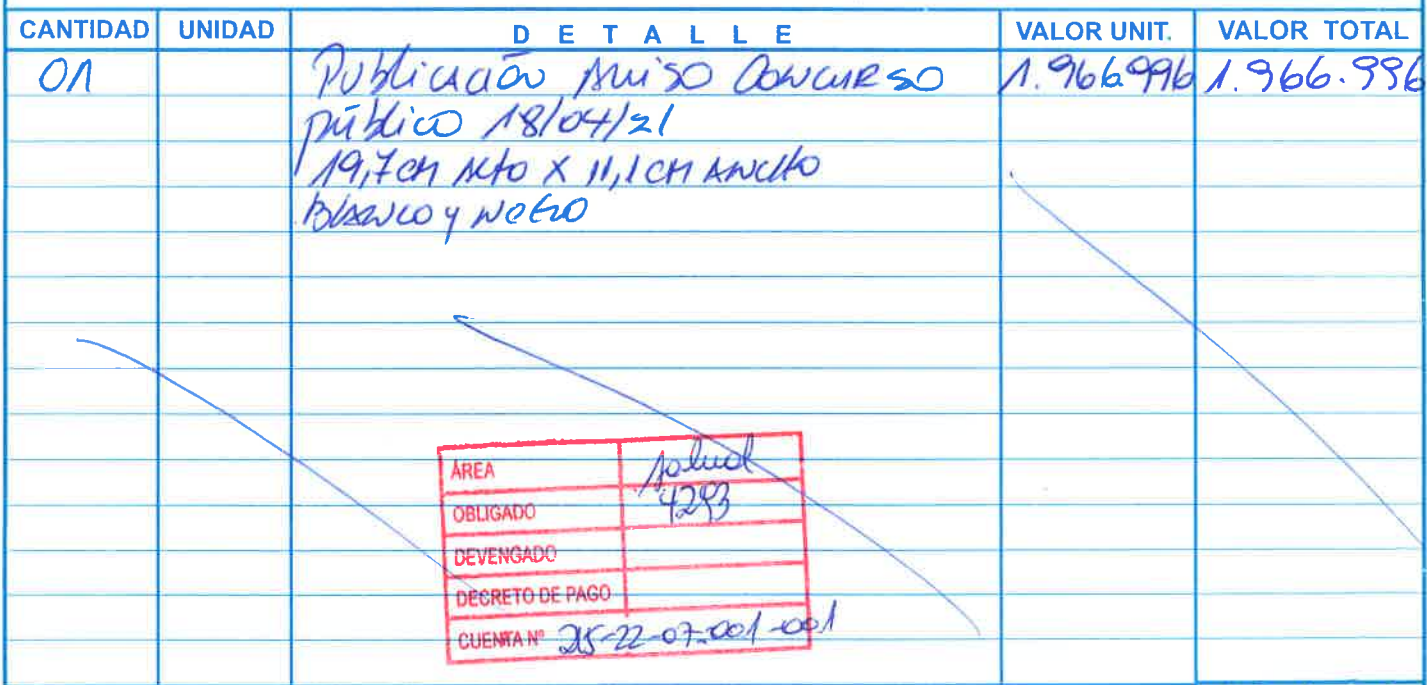 CANTIDAD UNIDAD DETALLE VALOR UNIT. VALOR TOTAL
01 Publicación Aviso Concurso 1.966.996 1.966.996
público 18/04/21
19,7 cm Alto X 11,1 cm Ancho
Blanco y Negro
ÁREA salud
OBLIGADO 4293
DEVENGADO
DECRETO DE PAGO
CUENTA Nº 215-22-07-001-001